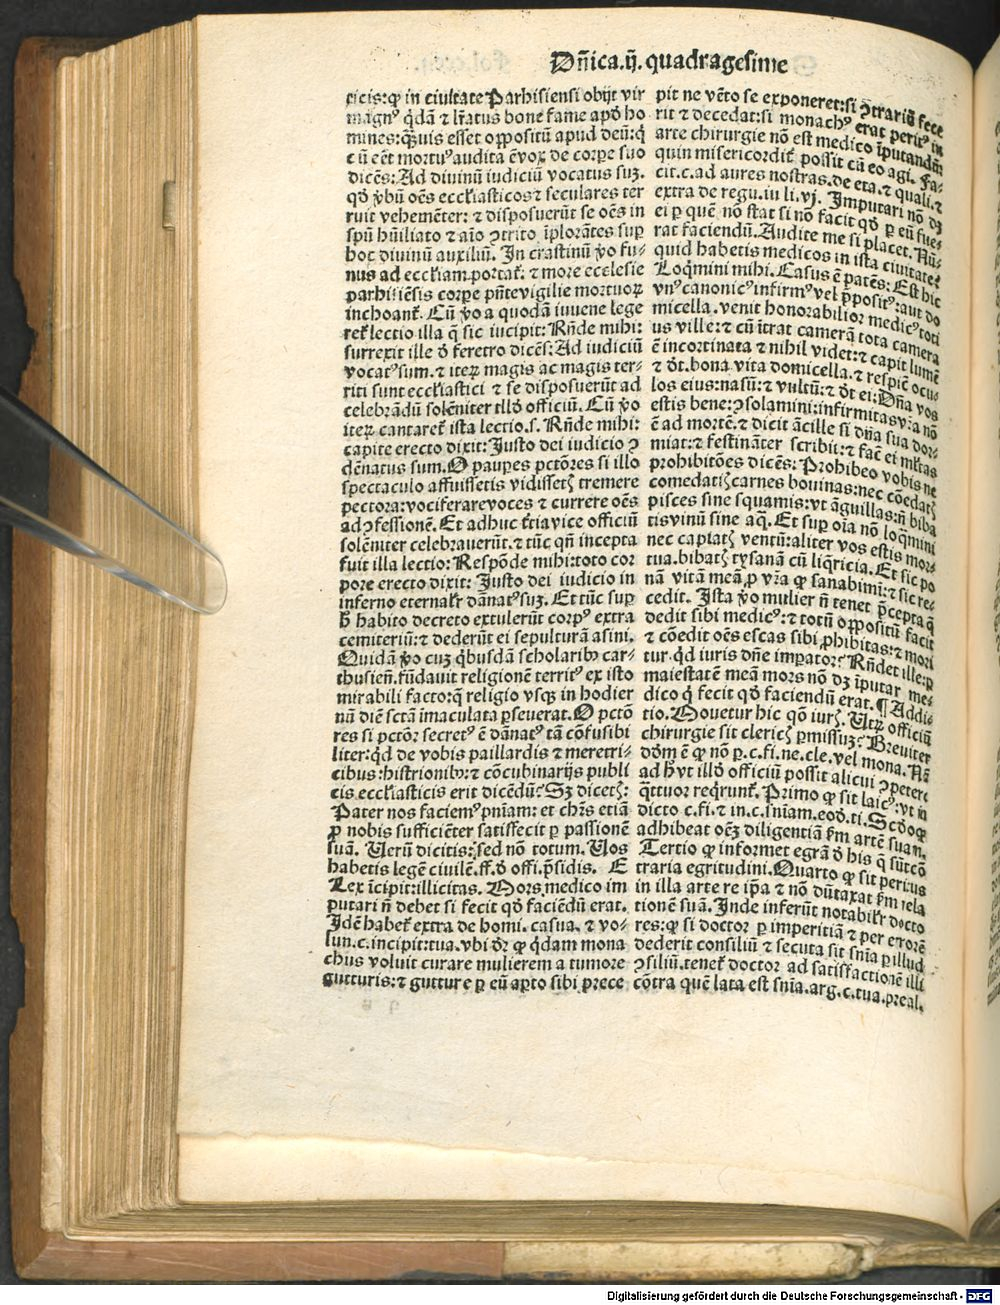 Dñica.ij. quadragesime
ticis: ꝙ in ciuitate Parhisiensi obijt vir
magnꝰ q̇dã ⁊ lr̃atus bone fame apđ ho
mines: q̃uis esset oppositũ apud deũ: q̇
c ũ eẽt mortuꝰ audita ẽ vox de corpe suo
dicẽs: Ad diuinũ iudiciũ vocatus suꝫ.
qđ ṽbũ oẽs eccl̃iasticos ⁊ seculares ter
ruit vehemẽter: ⁊ disposuerũt se oẽs in
spũ hũiliato ⁊ aĩo ↄtrito ĩplorãtes sup
hoc diuinũ auxiliũ. In crastinũ ṽo fu-
nus ad eccl̃iam portat̃. ⁊ more ecclesie
parhisiẽsis corpe pñte vigilie mortuoꝝ
inchoant̃. Cũ ṽo a quodam iuuene lege
ret̃ lectio illa q̃ sic incipit: Rñde mihi:
surrexit ille đ feretro dicẽs: Ad iudiciũ
vocatꝰ sum. ⁊ iteꝝ magis ac magis ter-
riti sunt eccl̃iastici ⁊ se disposuerũt ad
celebrãdũ solẽniter illđ officiũ. Cũ ṽo
iteꝝ cantaret̃ ista lectio.s. Rñde mihi:
capite erecto dixit: Justo dei iudicio ↄ
dẽnatus sum. O paupes pctõres si illo
spectaculo affuissetis vidissetꝭ tremere
pectora: vociferare voces ⁊ currere oẽs
ad ↄfessionẽ. Et adhuc t̃tia vice officiũ
solẽniter celebrauerũt. ⁊ tũc qñ incepta
fuit illa lectio: Respõde mihi: toto cor
pore erecto dixit: Justo dei iudicio in
inferno eternalr̃ dãnatꝰ suꝫ. Et tũc sup
h̾ habito decreto extulerũt corpꝰ extra
cemiteriũ: ⁊ dederũt ei sepulturã asini.
Quidã ṽo cuꝫ q̇busdã scholaribꝰ car-
thusieñ. fũdauit religionẽ territꝰ ex isto
mirabili facto: q̃ religio vsqꝫ in hodier
nũ diẽ sctã ĩmaculata pseuerat. O pctõ
res si pctõr secretꝰ ẽ dãnatꝰ tã cõfusibi
liter: q̇d de vobis paillardis ⁊ meretri-
cibus: histrionibꝰ: ⁊ cõcubinarijs publi
cis eccl̃iasticis erit dicẽdũ? Sꝫ dicetꝭ:
Pater nos faciemꝰ pñiam: et chr̃s etiã
ꝓ nobis sufficiẽter satisfecit p passionẽ
suã. Verũ dicitis: sed nõ totum. Vos
habetis legẽ ciuilẽ.ff.đ offi.p̃sidis. E
Lex ĩcipit: illicitas. Mors medico im
putari ñ debet si fecit qđ faciẽdũ erat.
Idẽ habet̃ extra de homi. casua. ⁊ vo-
lun.c.incipit: tua. vbi đr ꝙ q̇dam mona
chus voluit curare mulierem a tumore
gutturis: ⁊ gutture p eũ apto sibi prece
pit ne vẽto se exponeret: si ↄtrariũ fece
rit ⁊ decedat: si monachꝰ erat peritꝰ in
arte chirurgie nõ est medico ĩputandũ
quin misericordit̃ possit cũ eo agi. Fa-
cit.c.ad aures nostras.de eta. ⁊ quali. ⁊
extra de regu.iu li.vj. Imputari nõ dꝫ
ei p quẽ nõ stat si nõ facit qđ p eũ fue-
rat faciendũ. Audite me si placet. Nũ-
quid habetis medicos in ista ciuitate?
Loq̃mini mihi. Casus ẽ patẽs: Est hic
vnꝰ canonicꝰ infirmꝰ vel p̃positꝰ: aut do
micella. venit honorabilior medicꝰ toti
us ville: ⁊ cũ ĩtrat camerã tota camera
ẽ incortinata ⁊ nihil videt: ⁊ capit lumẽ
⁊ đt. bona vita domicella. ⁊ respiẽ ocu-
los eius: nasũ: ⁊ vultũ: ⁊ đt ei: Dña vos
estis bene: ↄsolamini: infirmitas vr̃a nõ
ẽ ad mortẽ. ⁊ dicit ãcille si dña sua dor-
miat: ⁊ festinãter scribit: ⁊ facẽ ei ml̃tas
prohibitões dicẽs: Prohibeo vobis ne
comedatꝭ carnes bouinas: nec cõedatꝭ
pisces sine squamis: vt ãguillas: ñ biba
tis vinũ sine aq̃. Et sup oĩa nõ loq̃mini
nec capiatꝭ ventũ: aliter vos estis mor-
tua. bibatꝭ tysanã cũ liq̃ricia. Et sic po
nã vitã meã ꝓ vr̃a ꝙ sanabimĩ: ⁊ sic re-
cedit. Ista ṽo mulier ñ tenet p̃cepta q̃
dedit sibi medicꝰ: ⁊ totũ oppositũ facit
⁊ cõedit oẽs escas sibi ꝓhibitas: ⁊ mori
tur. q̇d iuris dñe impatorꝭ? Rñdet ille: p
maiestatẽ meã mors nõ dꝫ ĩputar̃ me-
dico q̇ fecit qđ faciendũ erat. ¶ Addi-
tio. Mouetur hic qõ iurꝭ. Vtꝝ officiũ
chirurgie sit clericꝭ pmissuꝫ? Breuiter
đdm̃ ẽ ꝙ nõ p.c.fi.ne.cle.vel mona. Nã
ad h̾ vt illđ officiũ possit alicui ↄpetere
q̃ttuor req̃runt̃. Primo ꝙ sit laicꝰ: vt in
dicto c.fi. ⁊ in.c.sñiam.eođ.ti. Scđo ꝙ
adhibeat oẽꝫ diligentiã fm̃ artẽ suam.
Tertio ꝙ informet egrã đ his q̃ sũt cõ
traria egritudini. Quarto ꝙ sit peritus
in illa arte re ip̃a ⁊ nõ dũtaxat fm̃ rela
tionẽ suã. Inde inferũt notabilr̃ docto
res: ꝙ si doctor p imperitiã ⁊ per errorẽ
dederit consiliũ ⁊ secuta sit sñia p illud
ↄsiliũ. tenet̃ doctor ad satisfactionẽ illi
cõtra quẽ lata est sñia. arg.c.tua.preal.
Digitalisierung gefördert durch die Deutsche Forschungsgemeinschaft - DFG